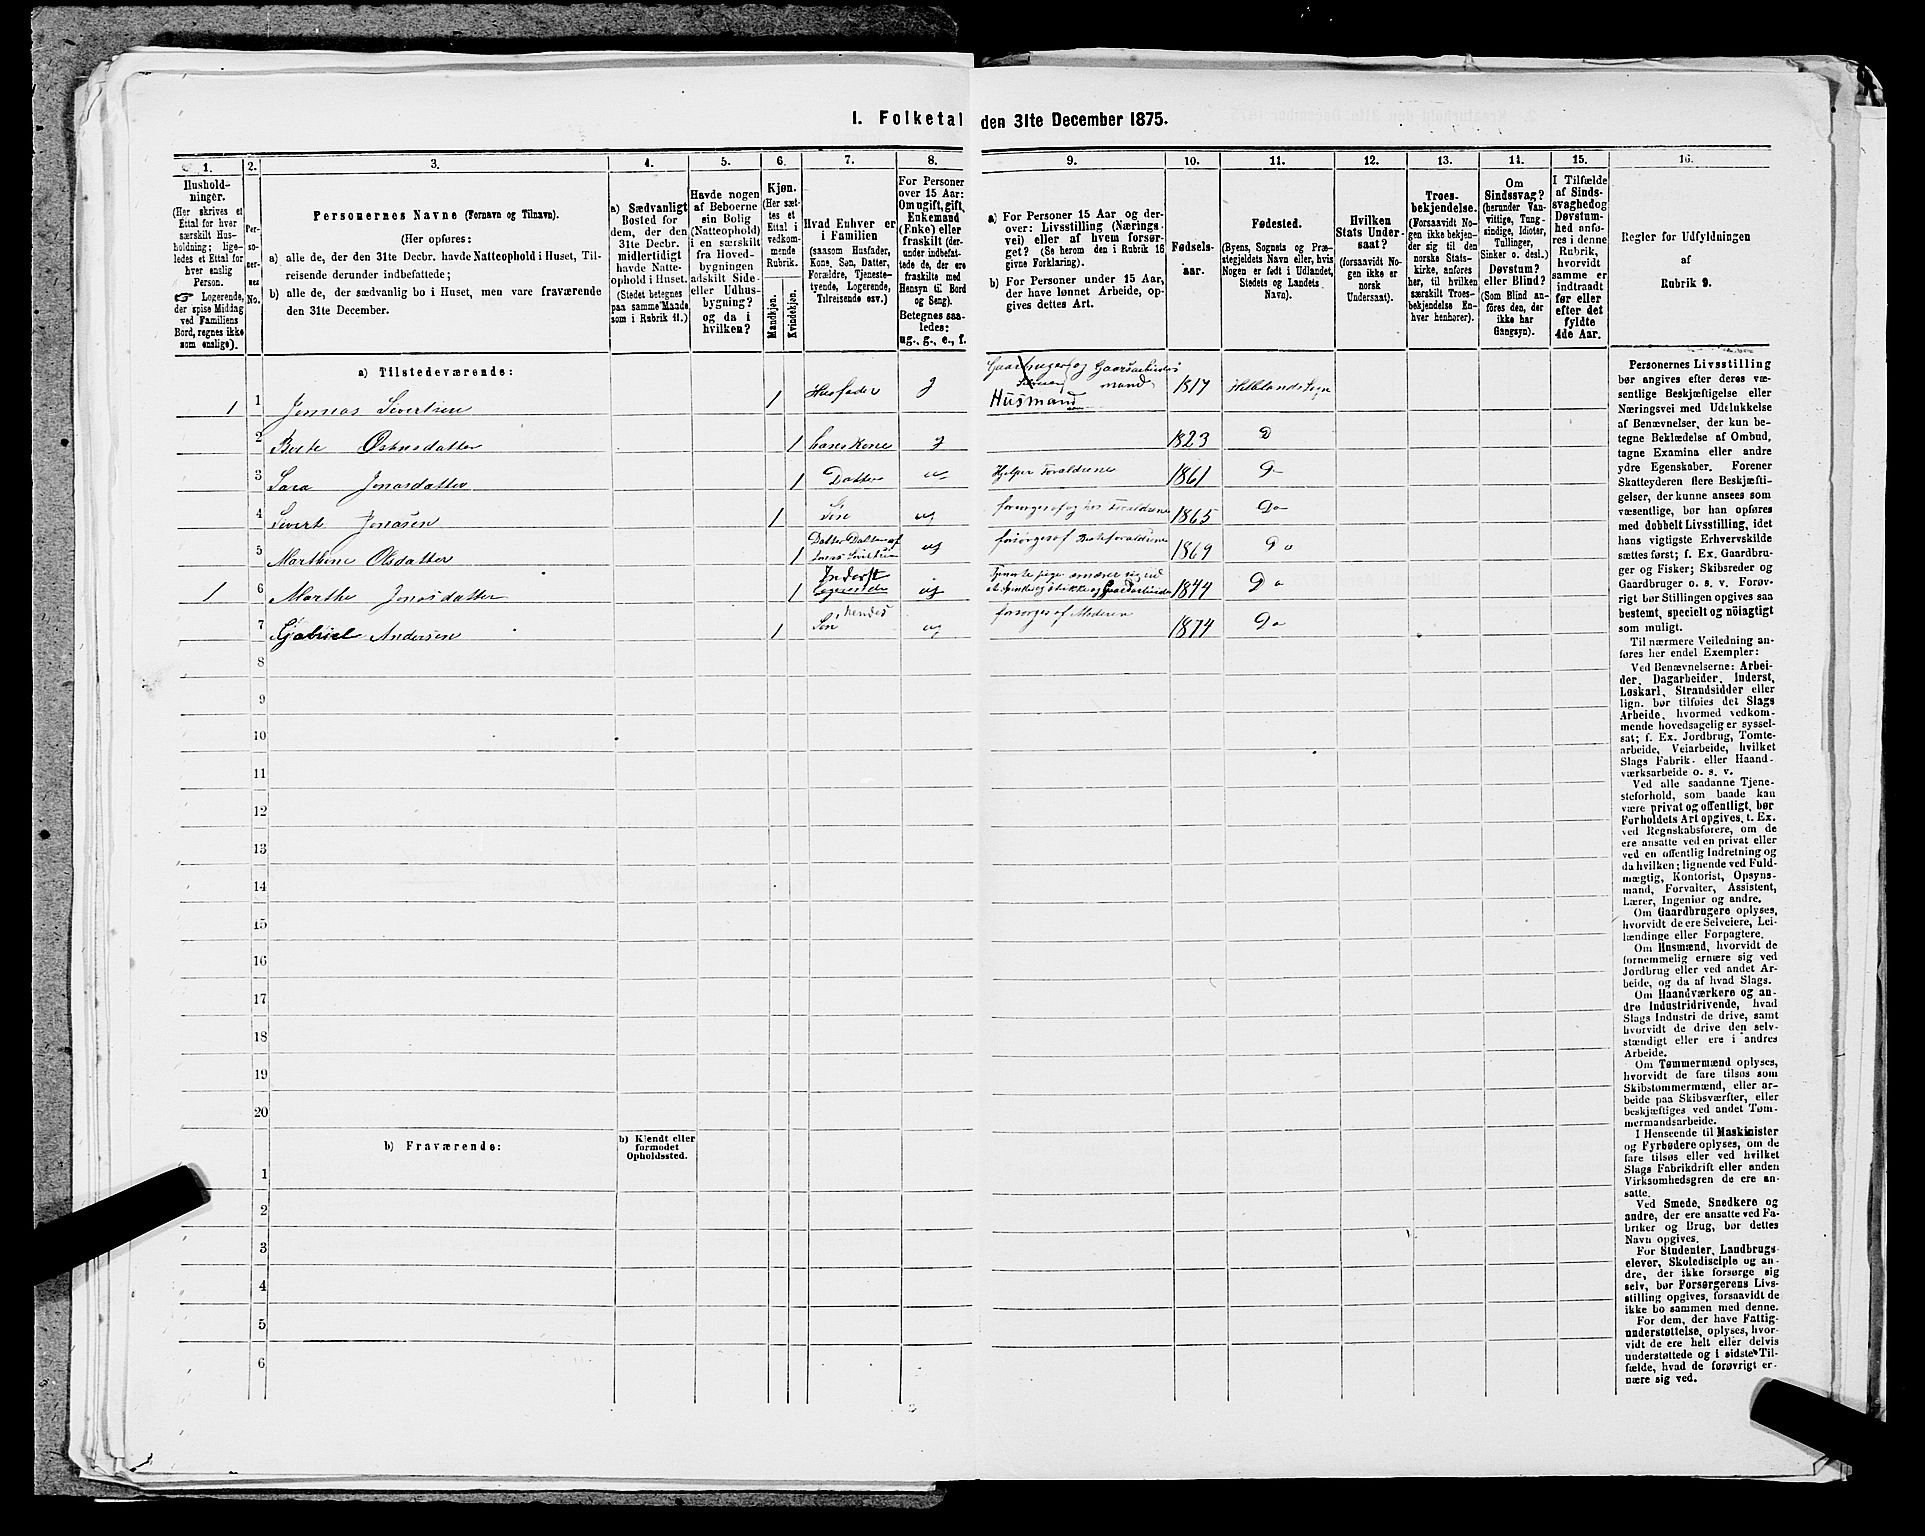 I. Folketal den 31te December 1875.
1. 2. 3. 4. 5. 6. 7. 8. 9. 10. 11. 12. 13. 14. 15. 16.
Hushold-
ninger.
(Her skrives et
Ettal for hver
særskilt Hus-
holdning; lige-
ledes et Ettal for
hver enslig
Person.
☞ Logerende,
der spise Middag
ved Familiens
Bord, regnes ikke
som enslige).
Per-
so-
ner-
nes
No.
Personernes Navne (Fornavn og Tilnavn).
(Her opføres:
a) alle de, der den 31te Decbr. havde Natteophold i Huset, Til-
reisende derunder indbefattede;
b) alle de, der sædvanlig bo i Huset, men vare fraværende
den 31te December.
a) Sædvanligt
Bosted for
dem, der den
31te Decbr.
midlertidigt
havde Natte-
ophold i Huset.
(Stedet betegnes
paa samme Maade
som i Rubrik 11.)
Havde nogen
af Beboerne
sin Bolig
(Natteophold)
i en særskilt
fra Hoved-
bygningen
adskilt Side-
eller Udhus-
bygning?
og da i
hvilken?
Kjøn.
(Her sæt-
tes et
Ettal i
vedkom-
mende
Rubrik.
Mandkjøn.
Kvindekjøn.
Hvad Enhver er
i Familien
(saasom Husfader,
Kone, Søn, Datter,
Forældre, Tjeneste-
tyende, Logerende,
Tilreisende osv.)
For Personer
over 15 Aar:
Om ugift, gift,
Enkemand
(Enke) eller
fraskilt (der-
under indbefat-
tede de, der ere
fraskilte med
Hensyn til Bord
og Seng).
Betegnes saa-
ledes:
ug., g., e., f.
a) For Personer 15 Aar og der-
over: Livsstilling (Nærings-
vei) eller af hvem forsør-
get? (Se herom den i Rubrik 16
givne Forklaring).
b) For Personer under 15 Aar,
der have lønnet Arbeide, op-
gives dettes Art.
Fødsels-
aar.
Fødested.
(Byens, Sognets og Præ-
stegjeldets Navn eller, hvis
Nogen er født i Udlandet,
Stedets og Landets
Navn).
Hvilken
Stats Under-
saat?
(forsaavidt No-
gen ikke er
norsk
Undersaat).
Troes-
bekjendelse.
(Forsaavidt No-
gen ikke bekjen-
der sig til den
norske Stats-
kirke, anføres
her, til hvilken
særskilt Troes-
bekjendelse En-
hver henhører).
Om
Sindssvag?
(herunder Van-
vittige, Tung-
sindige, Idioter,
Tullinger,
Sinker o. desl.)
Døvstum?
eller Blind?
(Som Blind an-
føres den, der
ikke har
Gangsyn).
I Tilfælde
af Sinds-
svaghed og
Døvstum-
hed anfø-
res i denne
Rubrik,
hvorvidt
samme er
indtraadt
før eller
efter det
fyldte
4de Aar.
Regler for Udfyldningen
af
Rubrik 9.
a) Tilstedeværende:
1 1 Jonnas Sivertsen 1 Husfader g Gaardbruger og Gaarsarbeides mand Husmand 1817 Sogn
2 Østensdatter 1 hans Kone g 1823 D
3 Sara Jonasdatter 1 Datter ug Hjelper Foraldrene 1861 Do
4 Sivert Jonasen 1 Søn ug Foraldrene 1865 Do
5 Marthine Olsdatter 1 Datter Datter af ug forsørges af Besteforaldrene 1869 Do
1 6 Marthe Jonasdatter 1 Inderst Logerende ug 1844 Do
7 Gabriel Andersen 1 hendes Søn ug forsørges af Moderen 1874 Do
8
9
10
11
12
13
14
15
16
17
18
19
20
b) Fraværende:
b) Kjendt eller
formodet
Opholdssted.
1
2
3
4
5
6
Personernes Livsstilling
bør angives efter deres væ-
sentlige Beskjæftigelse eller
Næringsvei med Udelukkelse
af Benævnelser, der kun be-
tegne Beklædelse af Ombud,
tagne Examina eller andre
ydre Egenskaber. Forener
Skatteyderen flere Beskjæfti-
gelser, der kunne ansees som
væsentlige, bør han opføres
med dobbelt Livsstilling, idet
hans vigtigste Erhvervskilde
sættes først; f. Ex. Gaardbru-
ger og Fisker; Skibsreder og
Gaardbruger o. s. v. Forøv-
rigt bør Stillingen opgives saa
bestemt, specielt og nøiagtigt
som muligt.
Til nærmere Veiledning an-
føres her endel Exempler:
Ved Benævnelserne: Arbei-
der, Dagarbeider, Inderst,
Løskarl, Strandsidder eller
lign. bør tilføies det Slags
Arbeide, hvormed vedkom-
mende hovedsagelig er syssel-
sat; f. Ex. Jordbrug, Tomte-
arbeide, Veiarbeide, hvilket
Slags Fabrik- eller Haand-
værksarbeide o. s. v.
Ved alle saadanne Tjene-
steforhold, som baade kan
være privat og offentligt, bør
Forholdets Art opgives, t. Ex.
ved Regnskabsførere, om de
ere ansatte ved en privat eller
ved en offentlig Indretning og
da hvilken; lignende ved Fuld-
mægtig, Kontorist, Opsyns-
mand, Forvalter, Assistent,
Lærer, Ingeniør og andre.
Om Gaardbrugere oplyses,
hvorvidt de ere Selveiere, Lei-
lændinge eller Forpagtere.
Om Husmænd, hvorvidt de
fornemmelig ernære sig ved
Jordbrug eller ved andet Ar-
beide, og da af hvad Slags.
Om Haandværkere og an-
dre Industridrivende, hvad
Slags Industri de drive, samt
hvorvidt de drive den selv-
stændigt eller ere i andres
Arbeide.
Om Tømmermænd oplyses,
hvorvidt de fare tilsøs som
Skibstømmermænd, eller ar-
beide paa Skibsværfter, eller
beskjæftiges ved andet Tøm-
mermandsarbeide.
I Henseende til Maskinister
og Fyrbødere oplyses, om de
fare tilsøs eller ved hvilket
Slags Fabrikdrift eller anden
Virksomhedsgren de ere an-
satte.
Ved Smede, Snedkere og
andre, der ere ansatte ved Fa-
briker og Brug, bør dettes
Navn opgives.
For Studenter, Landbrugs-
elever, Skoledisciple og an-
dre, der ikke forsørge sig
selv, bør Forsørgerens Livs-
stilling opgives, forsaavidt de
ikke bo sammen med denne.
For dem, der have Fattig-
understøttelse, oplyses, hvor-
vidt de ere helt eller delvis
understøttede og i sidste Til-
fælde, hvad de forøvrigt er-
nære sig ved.